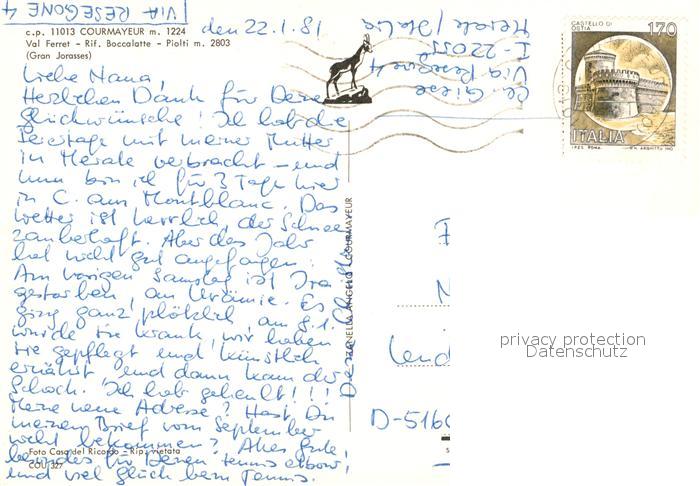 VIA RESEGONE 4
c.p. 11013 COURMAYEUR m. 1224
Val Ferret - Rif. Boccalatte - Piolti m. 2803
(Gran Jorasses)
den 22.1.81
Liebe Nana,
Herzlichen Dank für Deine
Glückwünsche! Ich habe die
Feiertage mit meiner Mutter
in Merate verbracht - und
nun bin ich für 3 Tage hier
in C. am Montblanc. Das
Wetter ist herrlich, der Schnee
zauberhaft. Aber das Jahr
hat nicht gut angefangen:
Am vorigen Samstag ist
gestorben, an Urämie. Es
ging ganz plötzlich, am 8.1.
wurde sie krank, wir haben
sie gepflegt und künstlich
ernährt und dann kam der
Schock. Ich hab geheult!!!
Meine neue Adresse? Hast Du
meinen Brief vom September
nicht bekommen? Alles Gute,
besonders für Deinen tennis elbow,
und viel Glück beim Tennis.
Foto Casa del Ricordo - Rip. vietata
COU 327
Via Resegone 4
I-22055
Merate/Italia
ZANELLA ANGELO - COURMAYEUR
CASTELLO DI
OSTIA
170
ITALIA
I.P.Z.S. ROMA
D-5160
privacy protection
Datenschutz